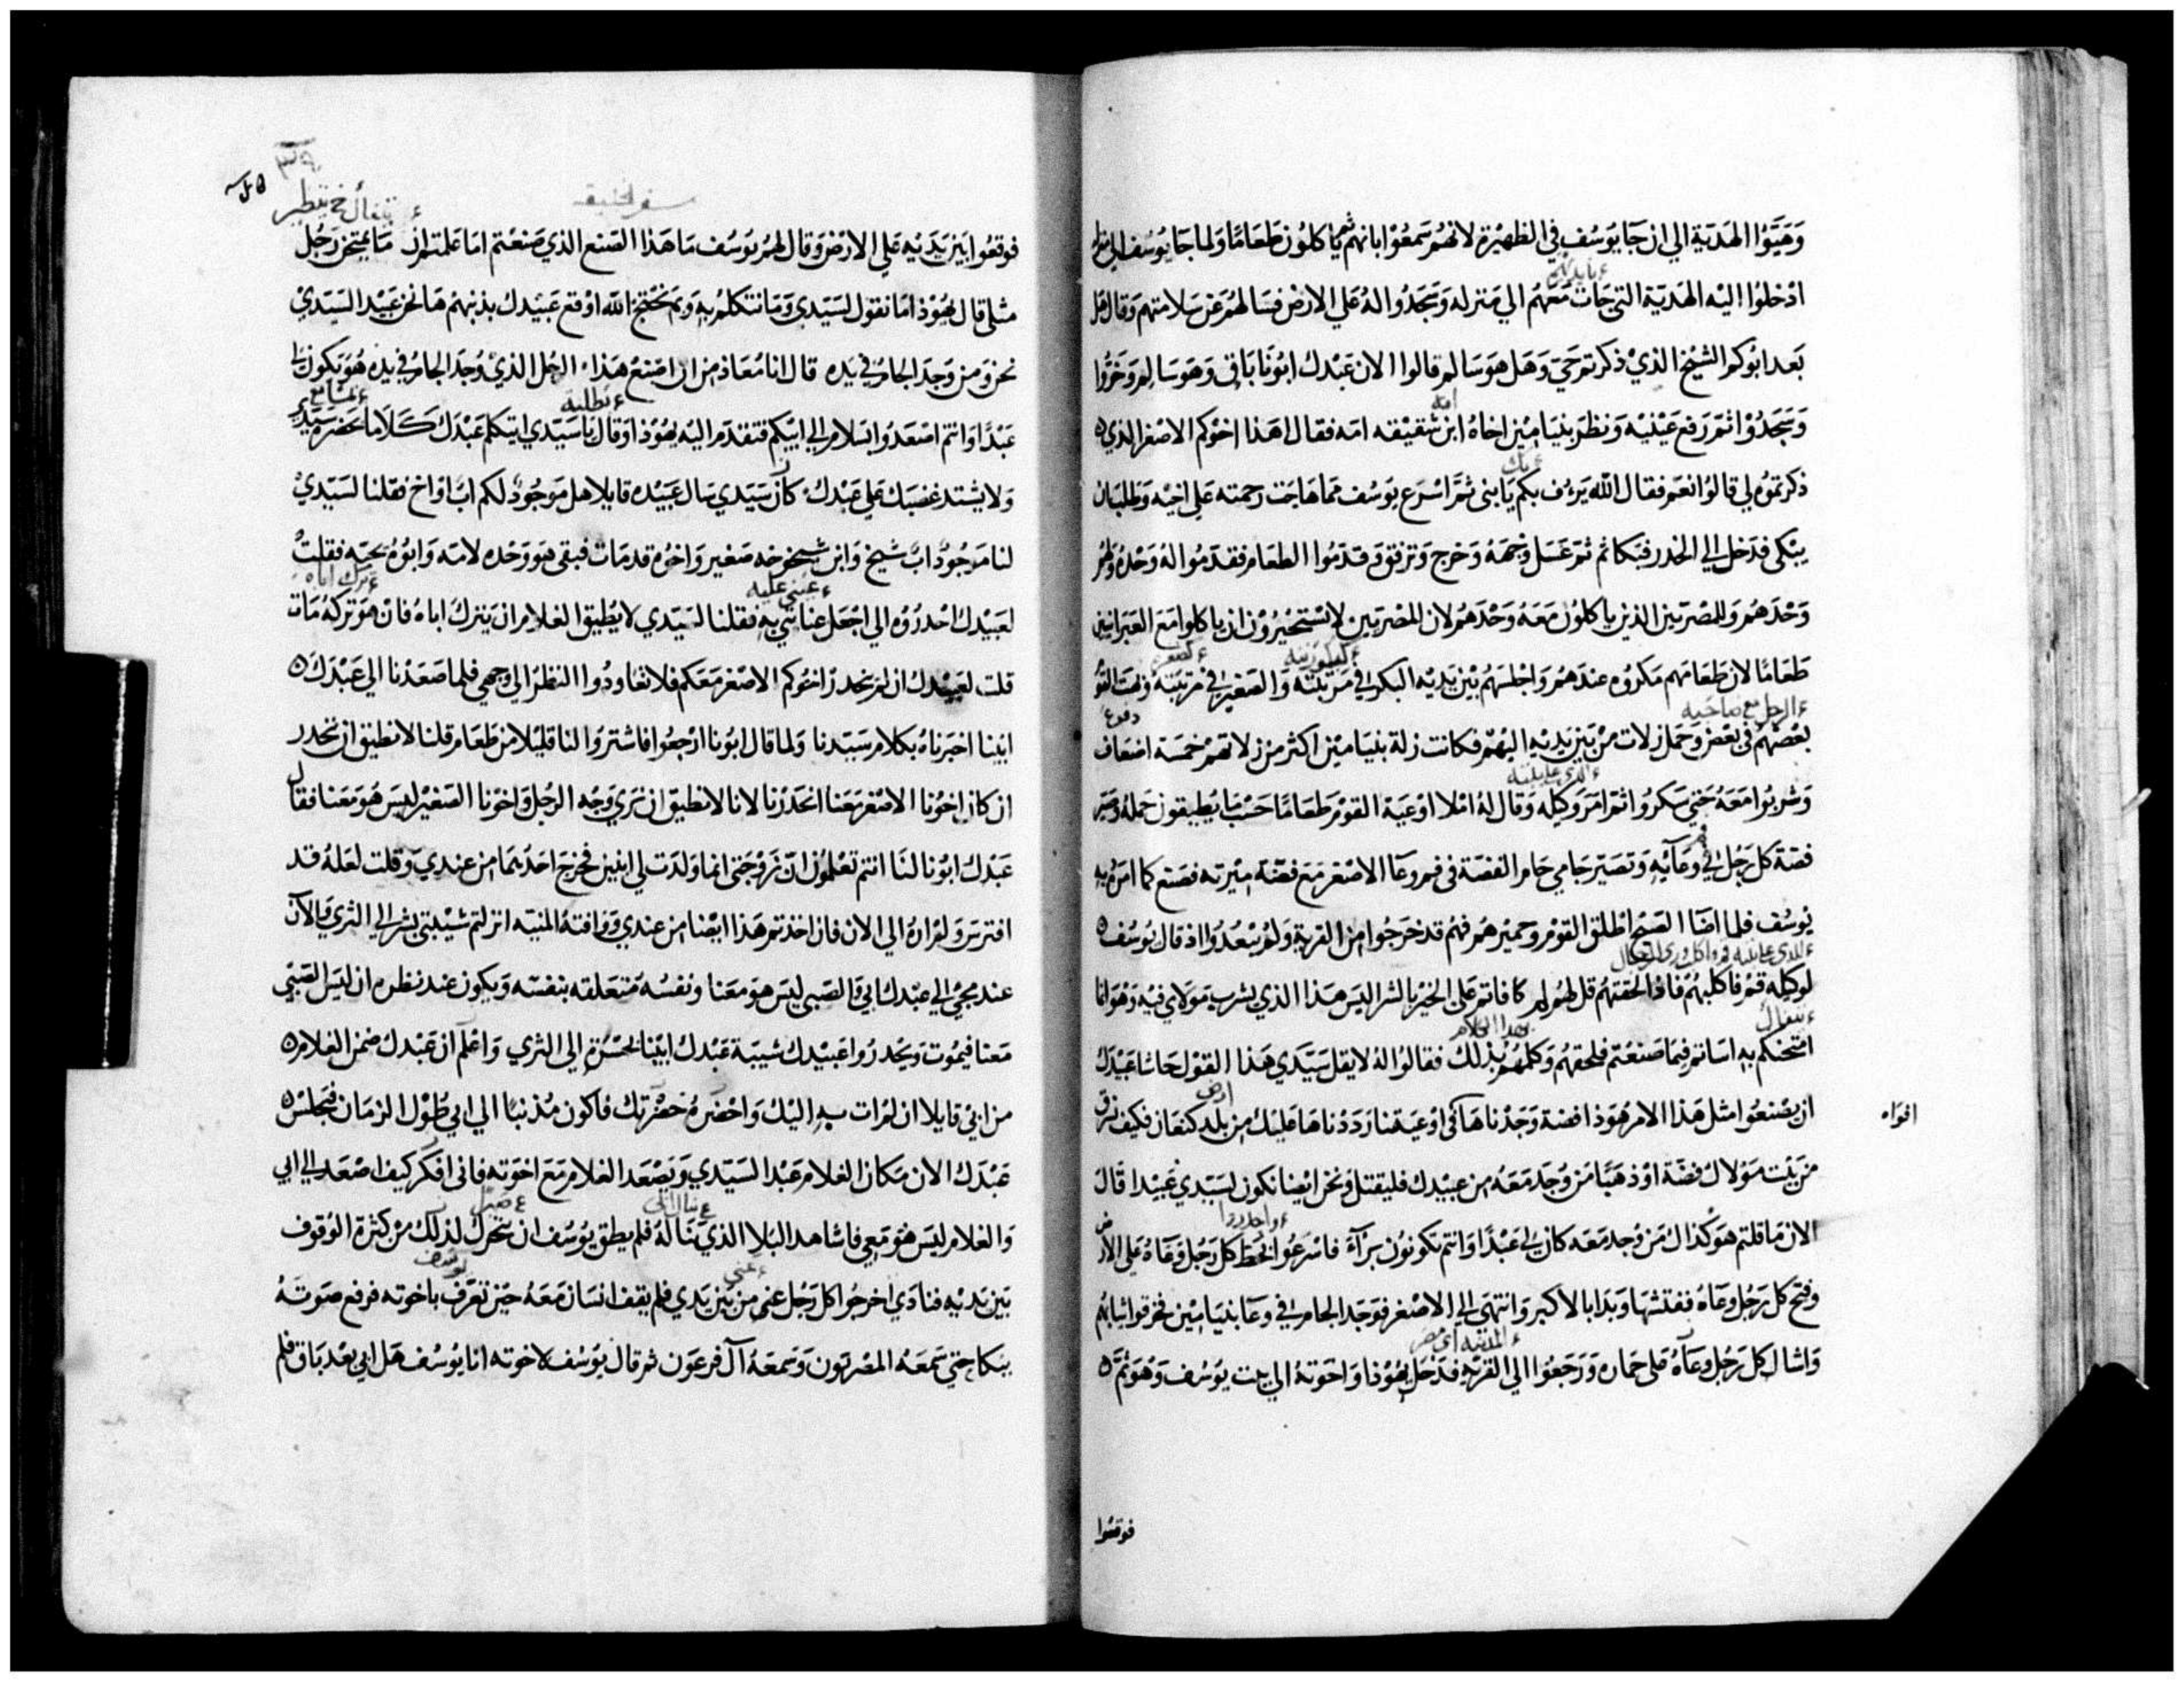 وَهَيَّوُا الهَديّة الي ان جَا يوسُف في الظهيرة لانهُم سَمعُوْا بانهم ثم ياكلون طعَامًا وَلما جَا يوُسُف الي منزله
ادْخلوُا اليْه الهَديّة التي جَات مَعَهُم الي منزله وَسَجَدُوا لهُ عَلي الارض فسَالهُم عَن سَلامتهم وَقال هَل
بَعد ابوكم الشيْخ الذيْ ذكرتم حَيّ وَهَل هوَ سَالم قالوا الان عَبْدك ابُونا بَاق وَهوَ سَالم وَخَرُّوا
وَسَجَدُوْا ثمّ رَفع عَيْنيْه وَنظرَ بنيَاميْن اخاهُ ابن شقيْقه امّه فقال اهَذا اخوكم الاصْغر الذي
ذكرتموُه لي قالوُا نعَم فقال اللّه يَرؤف بكم يَا بني ثمَّ اسْرَع يوسُف لما هَاجَت رحمته عَلي اخيْه وَطلبَ ان
يبْكي فدَخل الي الخدر فبَكا ثم ثمّ غسَل وَجْهَهُ وَخرج وَترفق وَقدمُوا الطعَام فقدمُوا لهُ وَحْدهُ وَلهُم
وَحْدَهُم وَللمصْريّين الذين ياكلوُن مَعَهُ وَحْدَهُم لان المصْريّين لا يسْتخيرُوْن ان ياكلوا مَعَ العبَرانيّين
طعَامًا لان طعَامَهم مَكروُه عندَهُم وَاجْلسَهُم بيْن يَديْه البكر في مَرْتبته وَالصَغير في مرتبَته وَبهت القوم
بعْضهُم في بعْض وَحَمل زلات منْ بَين يَديْه اليْهمْ فكانت زلة بنيَاميْن اكثر من زلاتهمْ خمسَة اضعَاف
وَشربُوا مَعَهُ حَتي سَكروُا ثمّ امَرَ وَكيْله وَقال لهُ امْلا اوْعيَة القوْم طعَامًا حَسْب مَا يُطيقون حَملهُ وَصَيّر
فضة كل رَجُل في وعَآئِهِ وَتصَيّر جَامي جَام الفضّة في فم وعَا الاصْغر مَع فضّة ميْرته فصَنع كما امَرهُ بهِ
يوُسُف فلما اضَآ الصُبح اطلق القوْم وَحميْرهمْ فهُم قد خَرَجُوا من القريَة وَلمْ يبْعدُوا اذ قال يوُسُف
لوَكيْله قمْ فاكلبهُمْ فاذا لحقتهُم قل لهُم لم كافاتم عَلي الخَيْر بالشر اليسَ هَذا الذي يشرب مَوْلاي فيْه وَهُوَ انما
امتحنكم به اسَاتم فيمَا صَنعْتم فلحقهُم وَكلمَهُم بذلك فقالوُا لهُ لا يقل سَيّدي هَذا القوْل حَاشا عَبيْدَك
ان يصْنعُوا مثل هَذا الامْر هُوَذا فضة وَجَدْناهَا في اوْعيَتنا رَدَدْناهَا عَليْك من بلد كنعَان فكيف نسْرق
منْ بَيْت مَوْلاك فضَة اوْ ذهبًا مَن وُجدَ مَعَهُ من عبيدك فليقتل وَنحْن ايْضا نكون لسَيّدي عَبيْدا قال
الان مَا قلتم هوَ كذاك مَنْ وُجد مَعَه كان لي عَبْدًا وَانتم تكونوُن برَآءَ فاسْرَعُوا فحَط كل رَجُل وعَاهُ عَلي الارض
وفتح كل رَجل وعَاهُ ففتشهَا وَبدَا بالاكبر وَانتهَي الي الاصْغر فوَجَد الجام في وعَا بنيَاميْن فخرقوا ثيابهُم
وَاشال كل رَجُل وعَآهُ عَلى حمَاره وَرَجَعُوا الي القريَة فدَخل يهُوْذا وَاخوَتهُ الي بيْت يوُسُف وَهُوَ ثمَّ
افوَاه
فوقعُوا
سفر الخليقه
يتفأل خ يتطير
فوقعُوا بَين يَدَيْهِ عَلي الارْض وَقال لهُم يوُسُف مَا هَذا الصَنع الذي صَنعْتم امَا عَلمتم ان مَا يمتحَن رَجُل
مثلي قال يهُوْذا مَا نقول لسَيّدي وَمَا نتكلم به وَبمَ نحْتجْ الله اوْقع عَبيدك بذنبهمْ هَا نحن عَبيْد السَيّديْ
نحن وَمن وَجدَ الجام في يَده قال انا مُعَاذ من ان اصْنع هَذا الرجُل الذيْ وُجدَ الجام في يده هُوَ يكون لي
عَبْدًا وَانتم اصْعَدُوا بسَلام الي ابيْكم فتقدَم اليْه يهُوْذا وَقال يا سَيّدي ليتكلم عَبْدَك كَلَامًا بحَضرة سَيّدي
وَلا يشتد غضبَك عَلي عَبْدك كان سَيّدي سَال عَبيْده قايلا هل موجُودٌ لكم ابٌ اوَ اخ فقلنا لسَيّديْ
لنا مَوجُودٌ ابٌ شيخ وَابن شيخوخه صَغير وَاخوُه قد مَات فبقي هوَ وَحْده لامّه وَابوُهُ يحبّه فقلت
لعَبيْدك احْدرُوُه الي اجْعَل عنايتي به فقلنا لسَيّدي لا يُطيق الغلام ان يَترك اباهُ فانْ هوَ تركهُ مَات
قلت لعَبيْدك ان لم ينحدر اخوُكم الاصْغر مَعَكم فلا تعَاودُوا النظرَ الي وَجهي فلما صَعَدْنا الي عَبْدَكَ
ابيْنا اخبَرناهُ بكلام سَيّدنا وَلما قال ابوُنا ارْجعُوا فاشترُوا لنا قليْلا من طعَام قلنا لا نطيق ان ننحدر
ان كان اخوُنا الاصْغر مَعَنا انحَدَرْنا لانا لا نطيق ان نري وَجه الرجُل وَاخوُنا الصَغيْر ليسَ هُوَ مَعَنا فقال
عَبْدك ابوُنا لنَا انتم تعْلموُن انّ زَوْجَتي انما وَلدَت لي ابنين فخرجَ احَدهُمَا من عندي وَقلت لعَلهُ قد
افترسَ وَلمْ ارهُ الي الان فان اخذتم هَذا ايْضا من عندي وَوَافتهُ المنيّه انزلتم شيْبتي بشر الي الثري وَالآن
عند مجيْي الي عبْدك ابي وَالصَبي ليسَ هوَ مَعَنا وَنفسُه مُتعَلقه بنفسه وَيكون عند نظره ان ليسَ الصَبّي
مَعَنا فيمُوتَ وَيحَدرُوا عَبيْدك شيبَة عَبْدك ابيْنا بحَسْرَة الي الثري وَاعْلمْ انّ عَبْدك ضمنَ الغلام
من ابيْ قايلا ان لمْ ات به اليْك وَاحْضرهُ حَضْرتك فاكون مُذنبًا الي ابي طوْل الزمَان فيَجلسْ
عَبْدَكُ الان مَكان الغلام عَبْدا لسَيّدي وَيَصْعَد الغلام مَعَ اخوَته فاني افكر كيف اصْعَد الي ابي
وَالغلام ليسَ هُوَ مَعي فاشاهد البَلا الذي نَالهُ فلم يطق يوُسُف ان يتحَرك لذلكَ منْ كثرة الوُقوف
بَين يَديْهِ فنادَي اخرجُوا كل رَجُل عني من بَين يَدي فلم يقف انسَان مَعَهُ حَيْن تعَرّف باخوته فرفع صَوتَهُ
ببَكا حتي سَمعَهُ المصْريّون وَسَمعَهُ آل فرعَون ثم قال يوُسُف لاخوته انا يوُسُف هَل ابي بعْد بَاق فلم